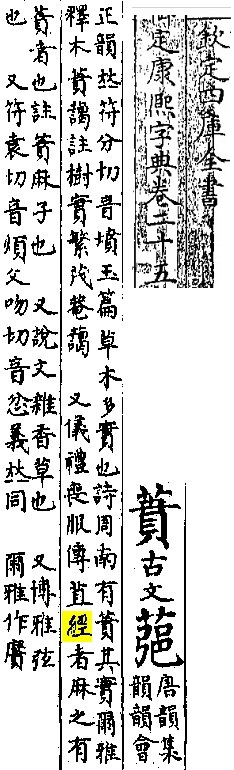 欽定四庫全書
御定康熙字典卷二十五
蕡古文葩唐韻集
韻韻會
正韻𠀤符分切音墳玉篇草木多實也詩周南有蕡其實爾雅
釋木蕡藹註樹實繁茂菴藹 又儀禮喪服傳苴經者麻之有
蕡者也註蕡麻子也 又說文雜香草也 又博雅弦
也 又符袁切音煩父吻切音忿義𠀤同 爾雅作黂